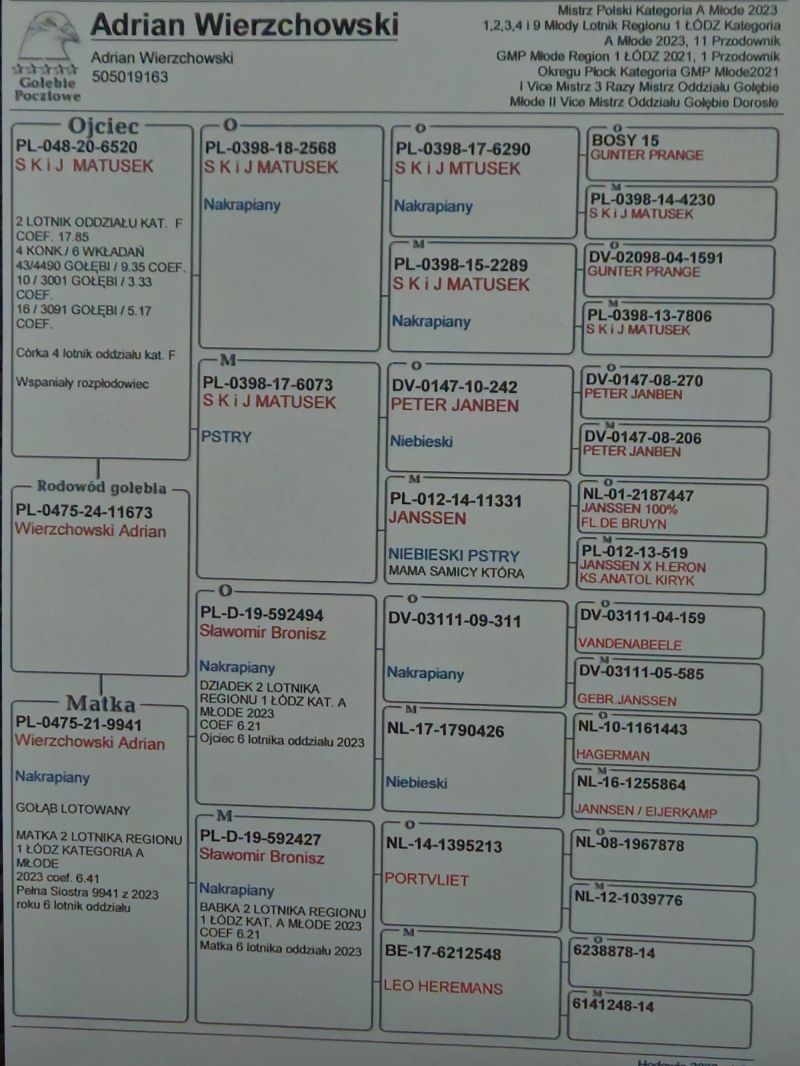 Adrian Wierzchowski
Adrian Wierzchowski
505019163
Gołębie
Pocztowe
Mistrz Polski Kategoria A Młode 2023
1,2,3,4 i 9 Młody Lotnik Regionu 1 ŁÓDZ Kategoria
A Młode 2023, 11 Przodownik
GMP Młode Region 1 ŁÓDZ 2021, 1 Przodownik
Okregu Płock Kategoria GMP Młode2021
I Vice Mistrz 3 Razy Mistrz Oddziału Gołębie
Młode II Vice Mistrz Oddziału Gołębie Dorosłe
Ojciec
PL-048-20-6520
S K i J MATUSEK
2 LOTNIK ODDZIAŁU KAT. F
COEF. 17.85
4 KONK./ 6 WKŁADAŃ
43/4490 GOŁĘBI / 9.35 COEF.
10 / 3001 GOŁĘBI / 3.33
COEF.
16 / 3091 GOŁĘBI / 5.17
COEF.
Córka 4 lotnik oddziału kat. F
Wspaniały rozpłodowiec
Rodowód gołębia
PL-0475-24-11673
Wierzchowski Adrian
Matka
PL-0475-21-9941
Wierzchowski Adrian
Nakrapiany
GOŁĄB LOTOWANY
MATKA 2 LOTNIKA REGIONU
1 ŁÓDZ KATEGORIA A
MŁODE
2023 coef. 6.41
Pełna Siostra 9941 z 2023
roku 6 lotnik oddziału
O
PL-0398-18-2568
S K i J MATUSEK
Nakrapiany
M
PL-0398-17-6073
S K i J MATUSEK
PSTRY
O
PL-D-19-592494
Sławomir Bronisz
Nakrapiany
DZIADEK 2 LOTNIKA
REGIONU 1 ŁÓDZ KAT. A
MŁODE 2023
COEF 6.21
Ojciec 6 lotnika oddziału 2023
M
PL-D-19-592427
Sławomir Bronisz
Nakrapiany
BABKA 2 LOTNIKA REGIONU
1 ŁÓDZ KAT. A MŁODE 2023
COEF 6.21
Matka 6 lotnika oddziału 2023
O
PL-0398-17-6290
S K i J MTUSEK
Nakrapiany
M
PL-0398-15-2289
S K i J MATUSEK
Nakrapiany
O
DV-0147-10-242
PETER JANBEN
Niebieski
M
PL-012-14-11331
JANSSEN
NIEBIESKI PSTRY
MAMA SAMICY KTÓRA
O
DV-03111-09-311
Nakrapiany
M
NL-17-1790426
Niebieski
O
NL-14-1395213
PORTVLIET
M
BE-17-6212548
LEO HEREMANS
O
BOSY 15
GUNTER PRANGE
M
PL-0398-14-4230
S K i J MATUSEK
O
DV-02098-04-1591
GUNTER PRANGE
M
PL-0398-13-7806
S K i J MATUSEK
O
DV-0147-08-270
PETER JANBEN
M
DV-0147-08-206
PETER JANBEN
O
NL-01-2187447
JANSSEN 100%
FL.DE BRUYN
M
PL-012-13-519
JANSSEN X H.ERON
KS.ANATOL KIRYK
O
DV-03111-04-159
VANDENABEELE
M
DV-03111-05-585
GEBR.JANSSEN
O
NL-10-1161443
HAGERMAN
M
NL-16-1255864
JANNSEN / EIJERKAMP
O
NL-08-1967878
M
NL-12-1039776
O
6238878-14
M
6141248-14